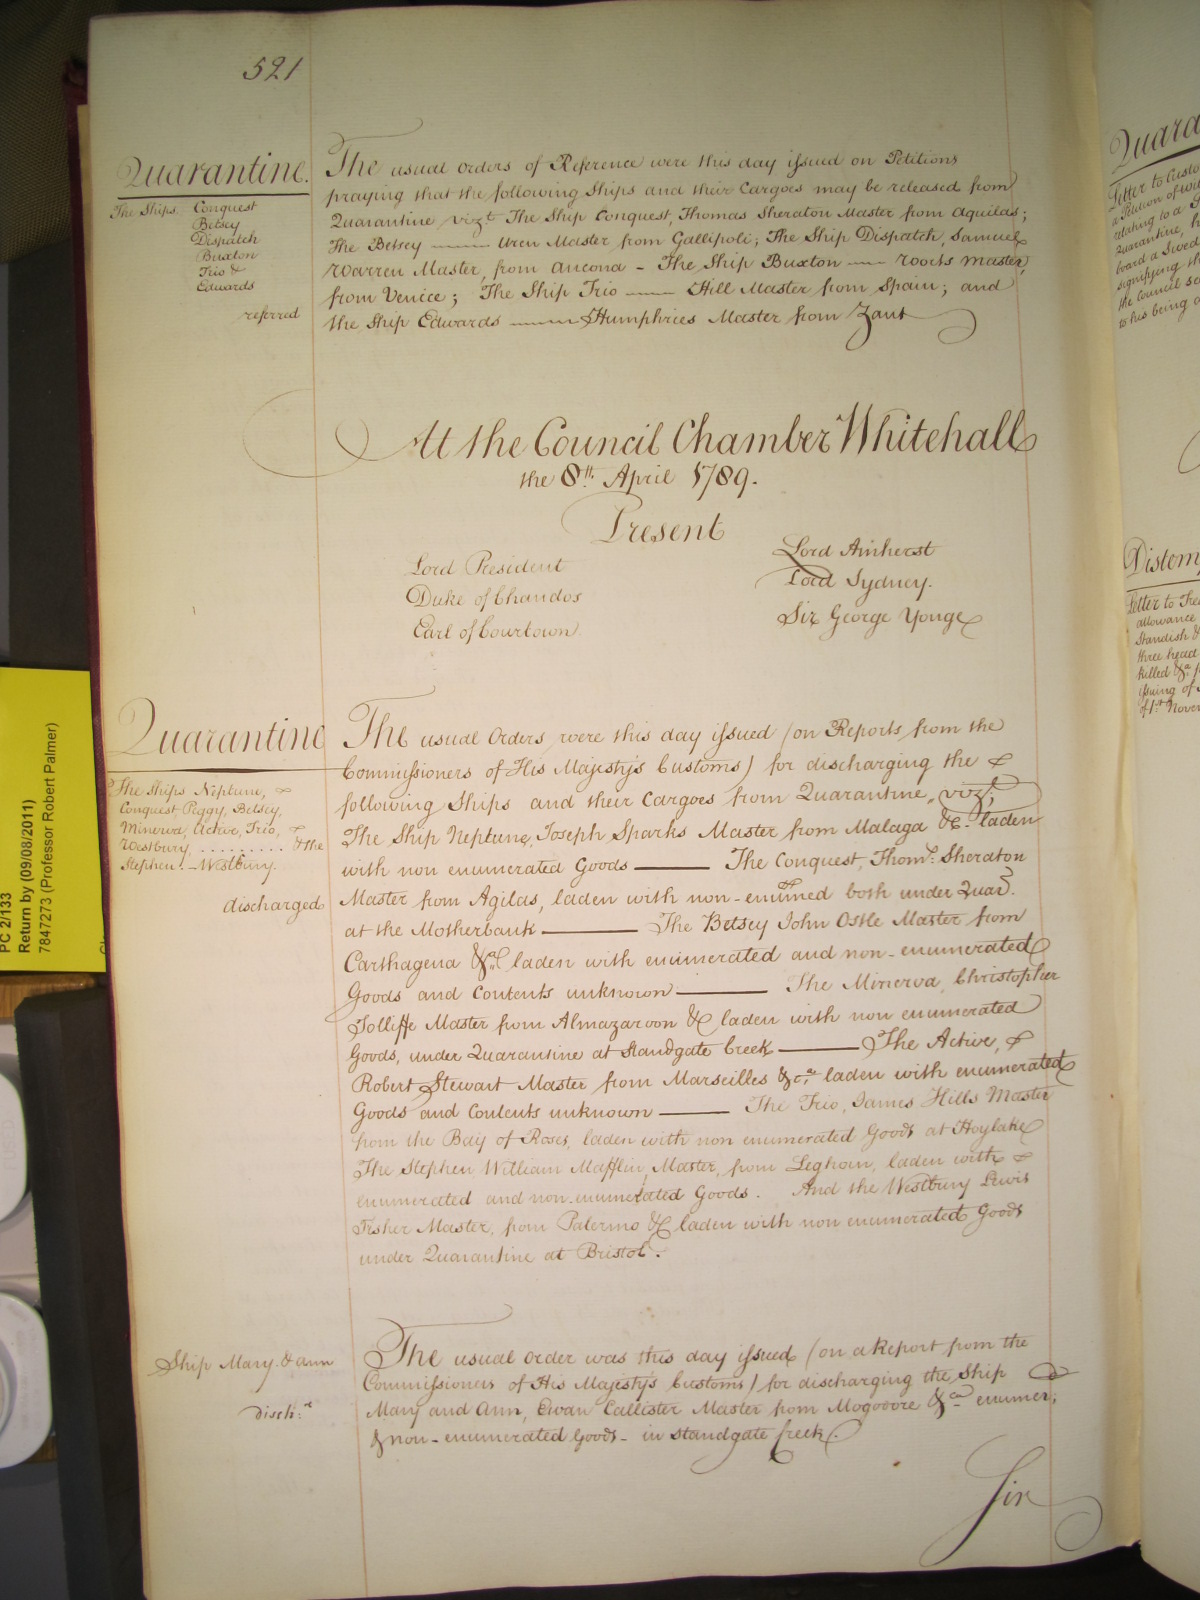 521
Quarantine.
The Ships Conquest
Betsey
Dispatch
Buxton
Trio &
Edwards
referred
The usual Orders of Reference were this day issued on Petitions
praying that the following Ships and their Cargoes may be released from
Quarantine vizt The Ship Conquest, Thomas Sheraton Master from Aquilas;
The Betsey —— Uren Master from Gallipoli; The Ship Dispatch, Samuel
Warren Master, from Ancona - The Ship Buxton —— Roorts Master,
from Venice; The Ship Trio —— Hill Master from Spain; and
the Ship Edwards —— Humphries Master from Zant
At the Council Chamber Whitehall
the 8th. April 1789.
Present
Lord President
Duke of Chandos
Earl of Courtown
Lord Amherst
Lord Sydney.
Sir George Yonge
Quarantine
The Ships Neptune,
Conquest, Peggy, Betsey,
Minerva, Active, Trio,
Westbury ......... & the
Stephen. - Westbury.
discharged
The usual Orders were this day issued (on Reports from the
Commissioners of His Majesty's Customs) for discharging the
following Ships and their Cargoes from Quarantine, vizt;
The Ship Neptune, Joseph Sparks Master from Malaga &c. laden
with non enumerated Goods —— The Conquest, Thoms. Sheraton
Master from Agilas, laden with non-enumed both under Quar.
at the Motherbank —— The Betsey John Ostle Master from
Carthagena &c laden with enumerated and non-enumerated
Goods and Contents unknown —— The Minerva, Christopher
Jolliffe Master from Almazaroon &c laden with non enumerated
Goods, under Quarantine at Standgate Creek —— The Active,
Robert Stewart Master from Marseilles &ca. laden with enumerated
Goods and Contents unknown —— The Trio, James Hills Master
from the Bay of Roses, laden with non enumerated Goods at Hoylake
The Stephen William Mafflin, Master, from Leghorn, laden with
enumerated and non-enumerated Goods. And the Westbury Lewis
Fisher Master, from Palermo &c laden with non enumerated Goods
under Quarantine at Bristol.
Ship Mary. & Ann
disch:d
The usual Order was this day issued (on a Report from the
Commissioners of His Majesty's Customs) for discharging the Ship
Mary and Ann, Ewan Callister Master from Mogodore &ca enumer;
& non-enumerated Goods - in Standgate Creek.
Sir
PC 2/133
Return by (09/08/2011)
7847273 (Professor Robert Palmer)
Letter to Custo
a Petition of
relating to a
Quarantine,
board a Swed
signifying th
the Council
to his being
Distem
Letter to Trea
allowance
Standish &
three head
killed &c
issuing of
of 1st Novem